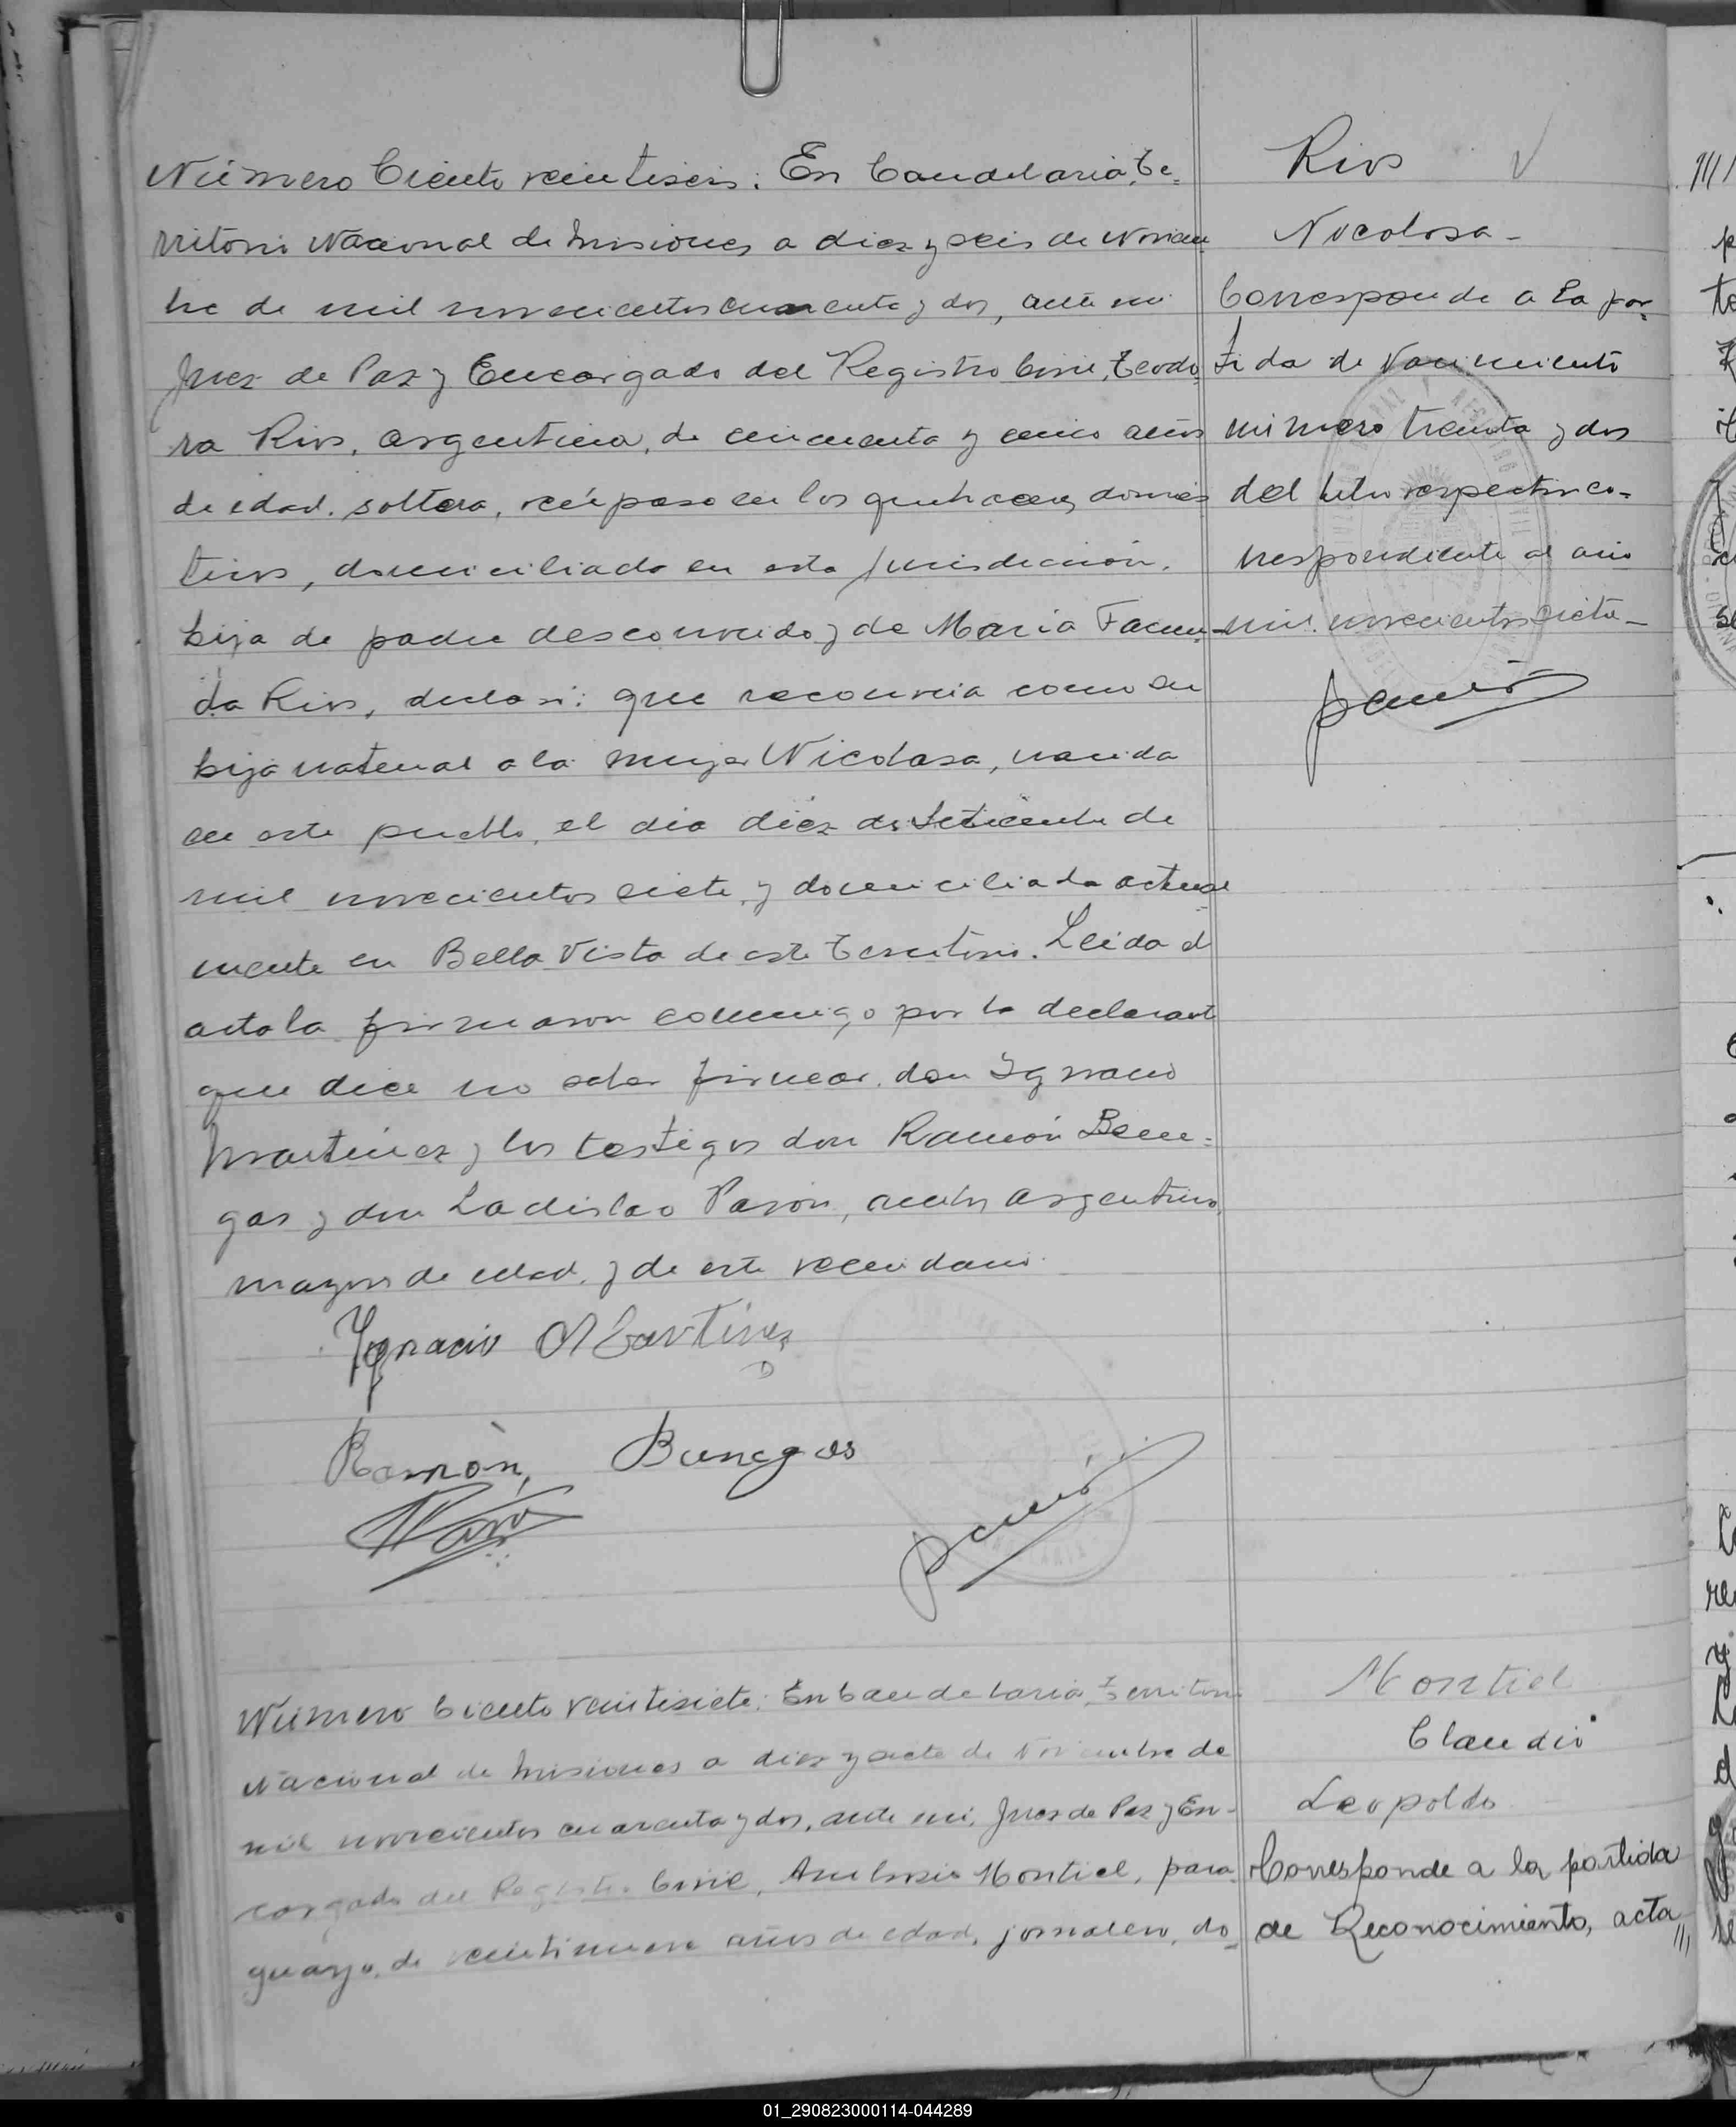 Número Ciento veintiseis: En Candelaria, Te=
rritorio Nacional de Misiones a diez y seis de Noviem
bre de mil novecientos cuarenta y dos, ante mi
Juez de Paz y Encargado del Registro Civil, Teodo=
ra Rios, argentina, de cincuenta y cinco años
de edad, soltera, en los quehaceres domés
ticos, domiciliada en esta jurisdicción,
hija de padre desconocido y de Maria Facun-
da Rios, declaró: que reconocia como su
hija natural a la mujer Nicolasa, nacida
en este pueblo, el dia diez de Setiembre de
mil novecientos siete, y domiciliada actual
mente en Bella Vista de este Territorio. Leida el
acta la firmaron conmigo por la declarante
que dice no saber firmar, don Ignacio
Martinez y los testigos don Ramón Bene=
gas y don Ladislao Pavón, ambos argentinos,
mayores de edad, y de este vecindario.
Ignacio Martinez
Ramón, Banegas
Rios
Nicolasa -
Corresponde a la par=
tida de nacimiento
número treinta y dos
del libro respectivo co=
rrespondiente al año
mil novecientos siete -
Número Ciento veintisiete: En Candelaria, Territorio
Nacional de Misiones a diez y siete de Noviembre de
mil novecientos cuarenta y dos, ante mi, Juez de Paz y En-
cargado del Registro Civil, Ambrosio Montiel, para=
guayo, de veintinueve años de edad, jornalero, do=
Montiel
Claudio
Leopoldo
Corresponde a la partida
de Reconocimiento, acta
01_290823000114-044289